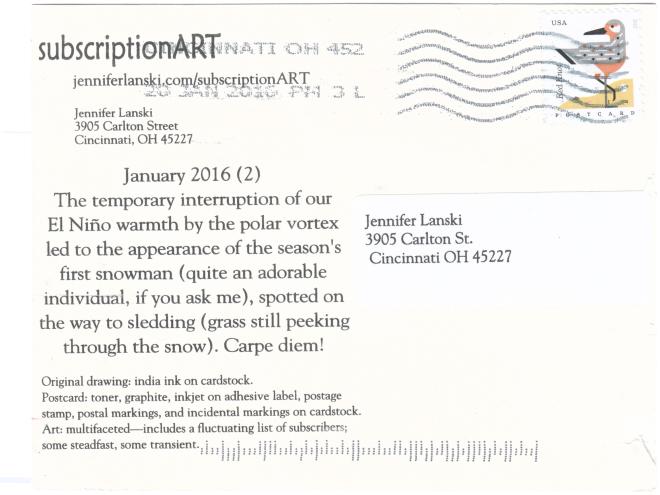 subscriptionART
CINCINNATI OH 452
jenniferlanski.com/subscriptionART
26 JAN 2016 PM 3 L
Jennifer Lanski
3905 Carlton Street
Cincinnati, OH 45227
USA
Red Knot
POSTCARD
January 2016 (2)
The temporary interruption of our
El Niño warmth by the polar vortex
led to the appearance of the season's
first snowman (quite an adorable
individual, if you ask me), spotted on
the way to sledding (grass still peeking
through the snow). Carpe diem!
Jennifer Lanski
3905 Carlton St.
Cincinnati OH 45227
Original drawing: india ink on cardstock.
Postcard: toner, graphite, inkjet on adhesive label, postage
stamp, postal markings, and incidental markings on cardstock.
Art: multifaceted—includes a fluctuating list of subscribers;
some steadfast, some transient.